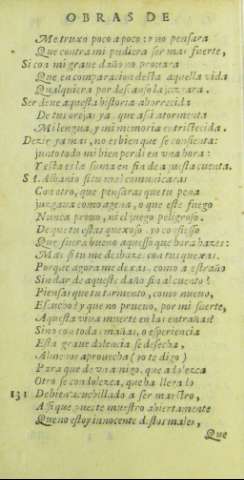 OBRAS DE
Me truxo poco a poco: y no pensara
Que contra mi pudiera ser mas fuerte,
Si con mi grave daño no provara
Que en comparacion desta aquella vida
Qualquiera por descanso la juzgara.
Ser deve aquesta historia aborrecida
De tus orejas ya, que assi atormenta
Mi lengua, y mi memoria entristecida.
Dezir ya mas, no es bien que se consienta:
junto todo mi bien perdi en una hora:
Y esta es la suma en fin de aquesta cuenta.
S A. Albanio si tu mal comunicaras
Con otro, que pensaras que tu pena
juzgava como agena, o que este fuego
Nunca provo, ni el juego peligroso.
De que tu estas quexoso yo confiesso
Que fuera bueno aquesso que hora hazes:
Mas si tu me deshazes con tus quexas,
Porque agora me dexas, como a estraño
Sin dar de aqueste daño fin al cuento?
Piensas que tu tormento, como nuevo,
Escucho? y que no pruevo, por mi suerte,
Aquesta viva muerte en las entrañas?
Si no con todas mañas, o esperiencia
Esta grave dolencia se desecha,
Al menos aprovecha (yo te digo)
Para que de un amigo, que adolezca
Otro se condolezca, que ha llegado
131 De bien acuchillado a ser maestro,
Assi que, pues te muestro abiertamente
Que no estoy inocente destos males,
Que